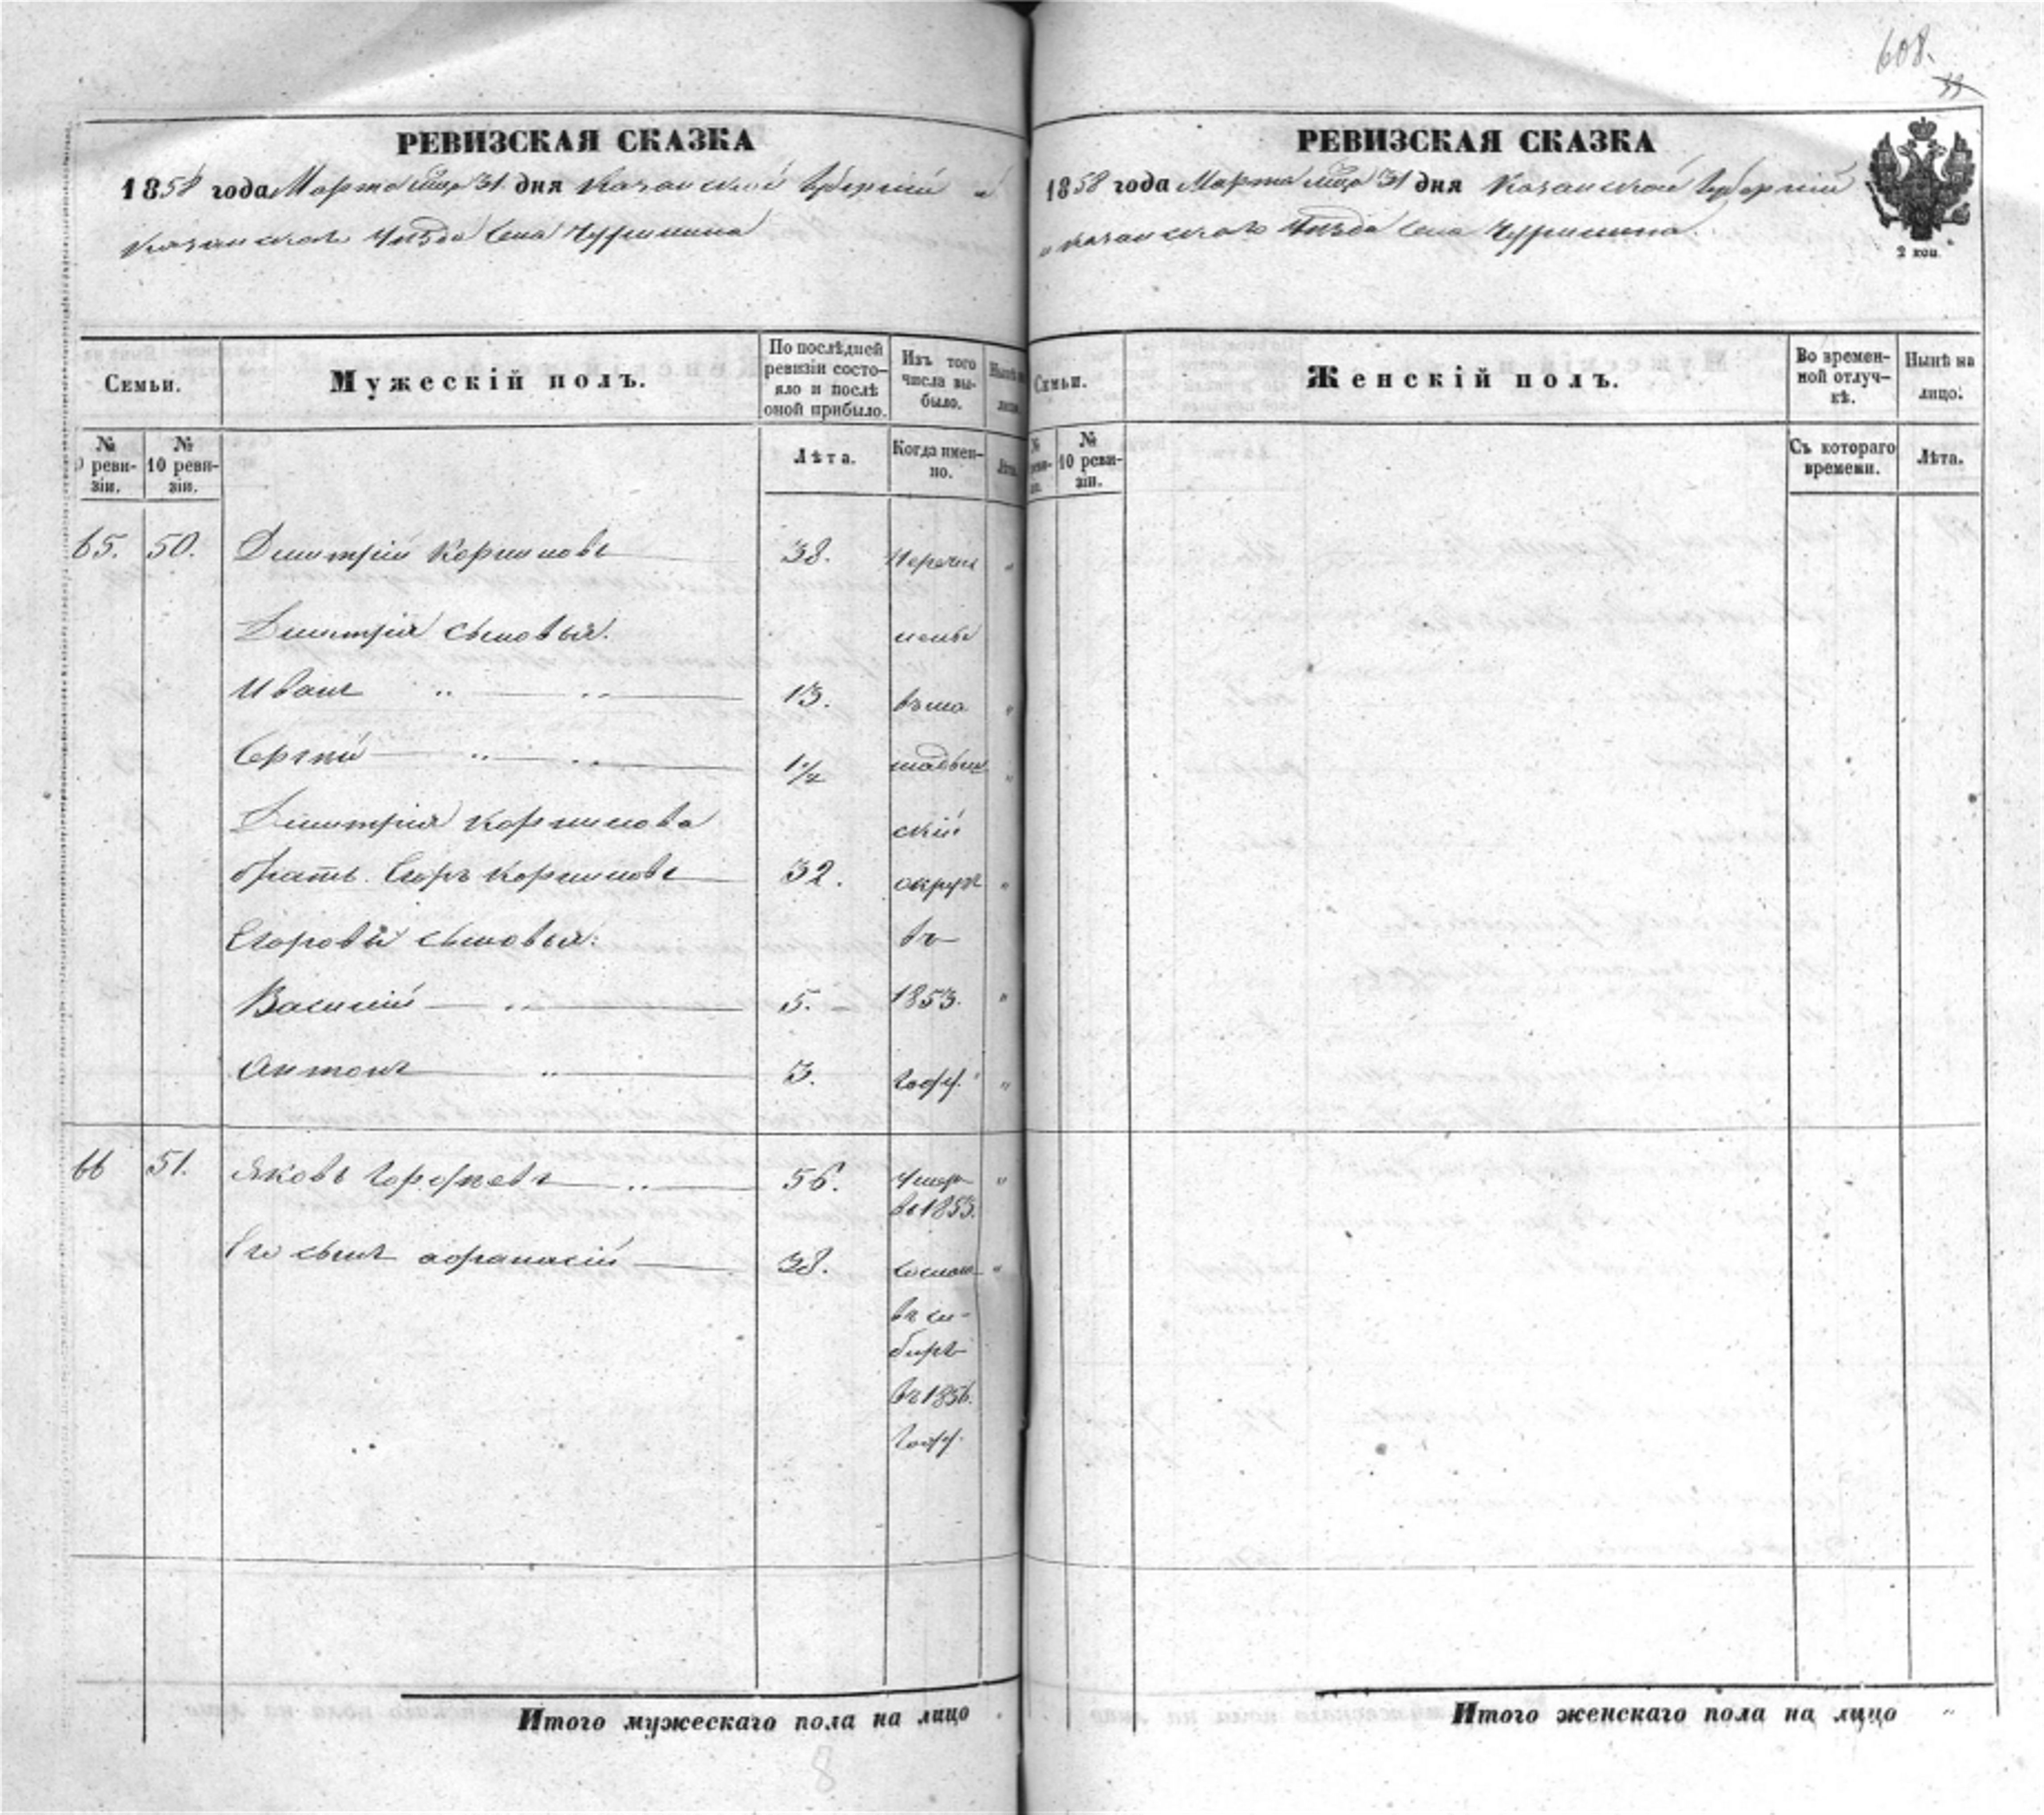 608.
33
РЕВИЗСКАЯ СКАЗКА
1858 года Марта м̃ца 31 дня Казанской Губерніи и
Казанскаго Уѣзда Села Чурилина
Семьи.
Мужескій полъ.
По послѣдней ревизіи состо-
яло и послѣ оной прибыло.
Изъ того числа вы-
было.
Нынѣ на лицо.
№ 9 реви-
зіи.
№ 10 реви-
зіи.
Лѣта.
Когда имен-
но.
Лѣта.
65. 50. Дмитрій Корниловъ 38. Перечис „
Дмитрія сыновья. лены
Иванъ 13. въ ма „
Сергѣй 1/4 мадыш „
Дмитрія Корнилова скій
братъ Егоръ Корниловъ 32. округъ „
Егоровы сыновья: въ
Василій 5. 1853. „
Антонъ 3. году. „
66 51. Яковъ Гордѣевъ 56. Умеръ „
въ 1853.
Его сынъ Афанасій 38. сослан „
въ си-
бирь
въ 1856.
году.
Итого мужескаго пола на лицо
8
РЕВИЗСКАЯ СКАЗКА
1858 года Марта м̃ца 31 дня Казанской Губерніи
и Казанскаго Уѣзда Села Чурилина.
2 коп.
Семьи.
Женскій полъ.
Во времен-
ной отлуч-
кѣ.
Нынѣ на лицо.
№ реви-
зіи.
№ 10 реви-
зіи.
Съ котораго времени.
Лѣта.
Итого женскаго пола на лицо „